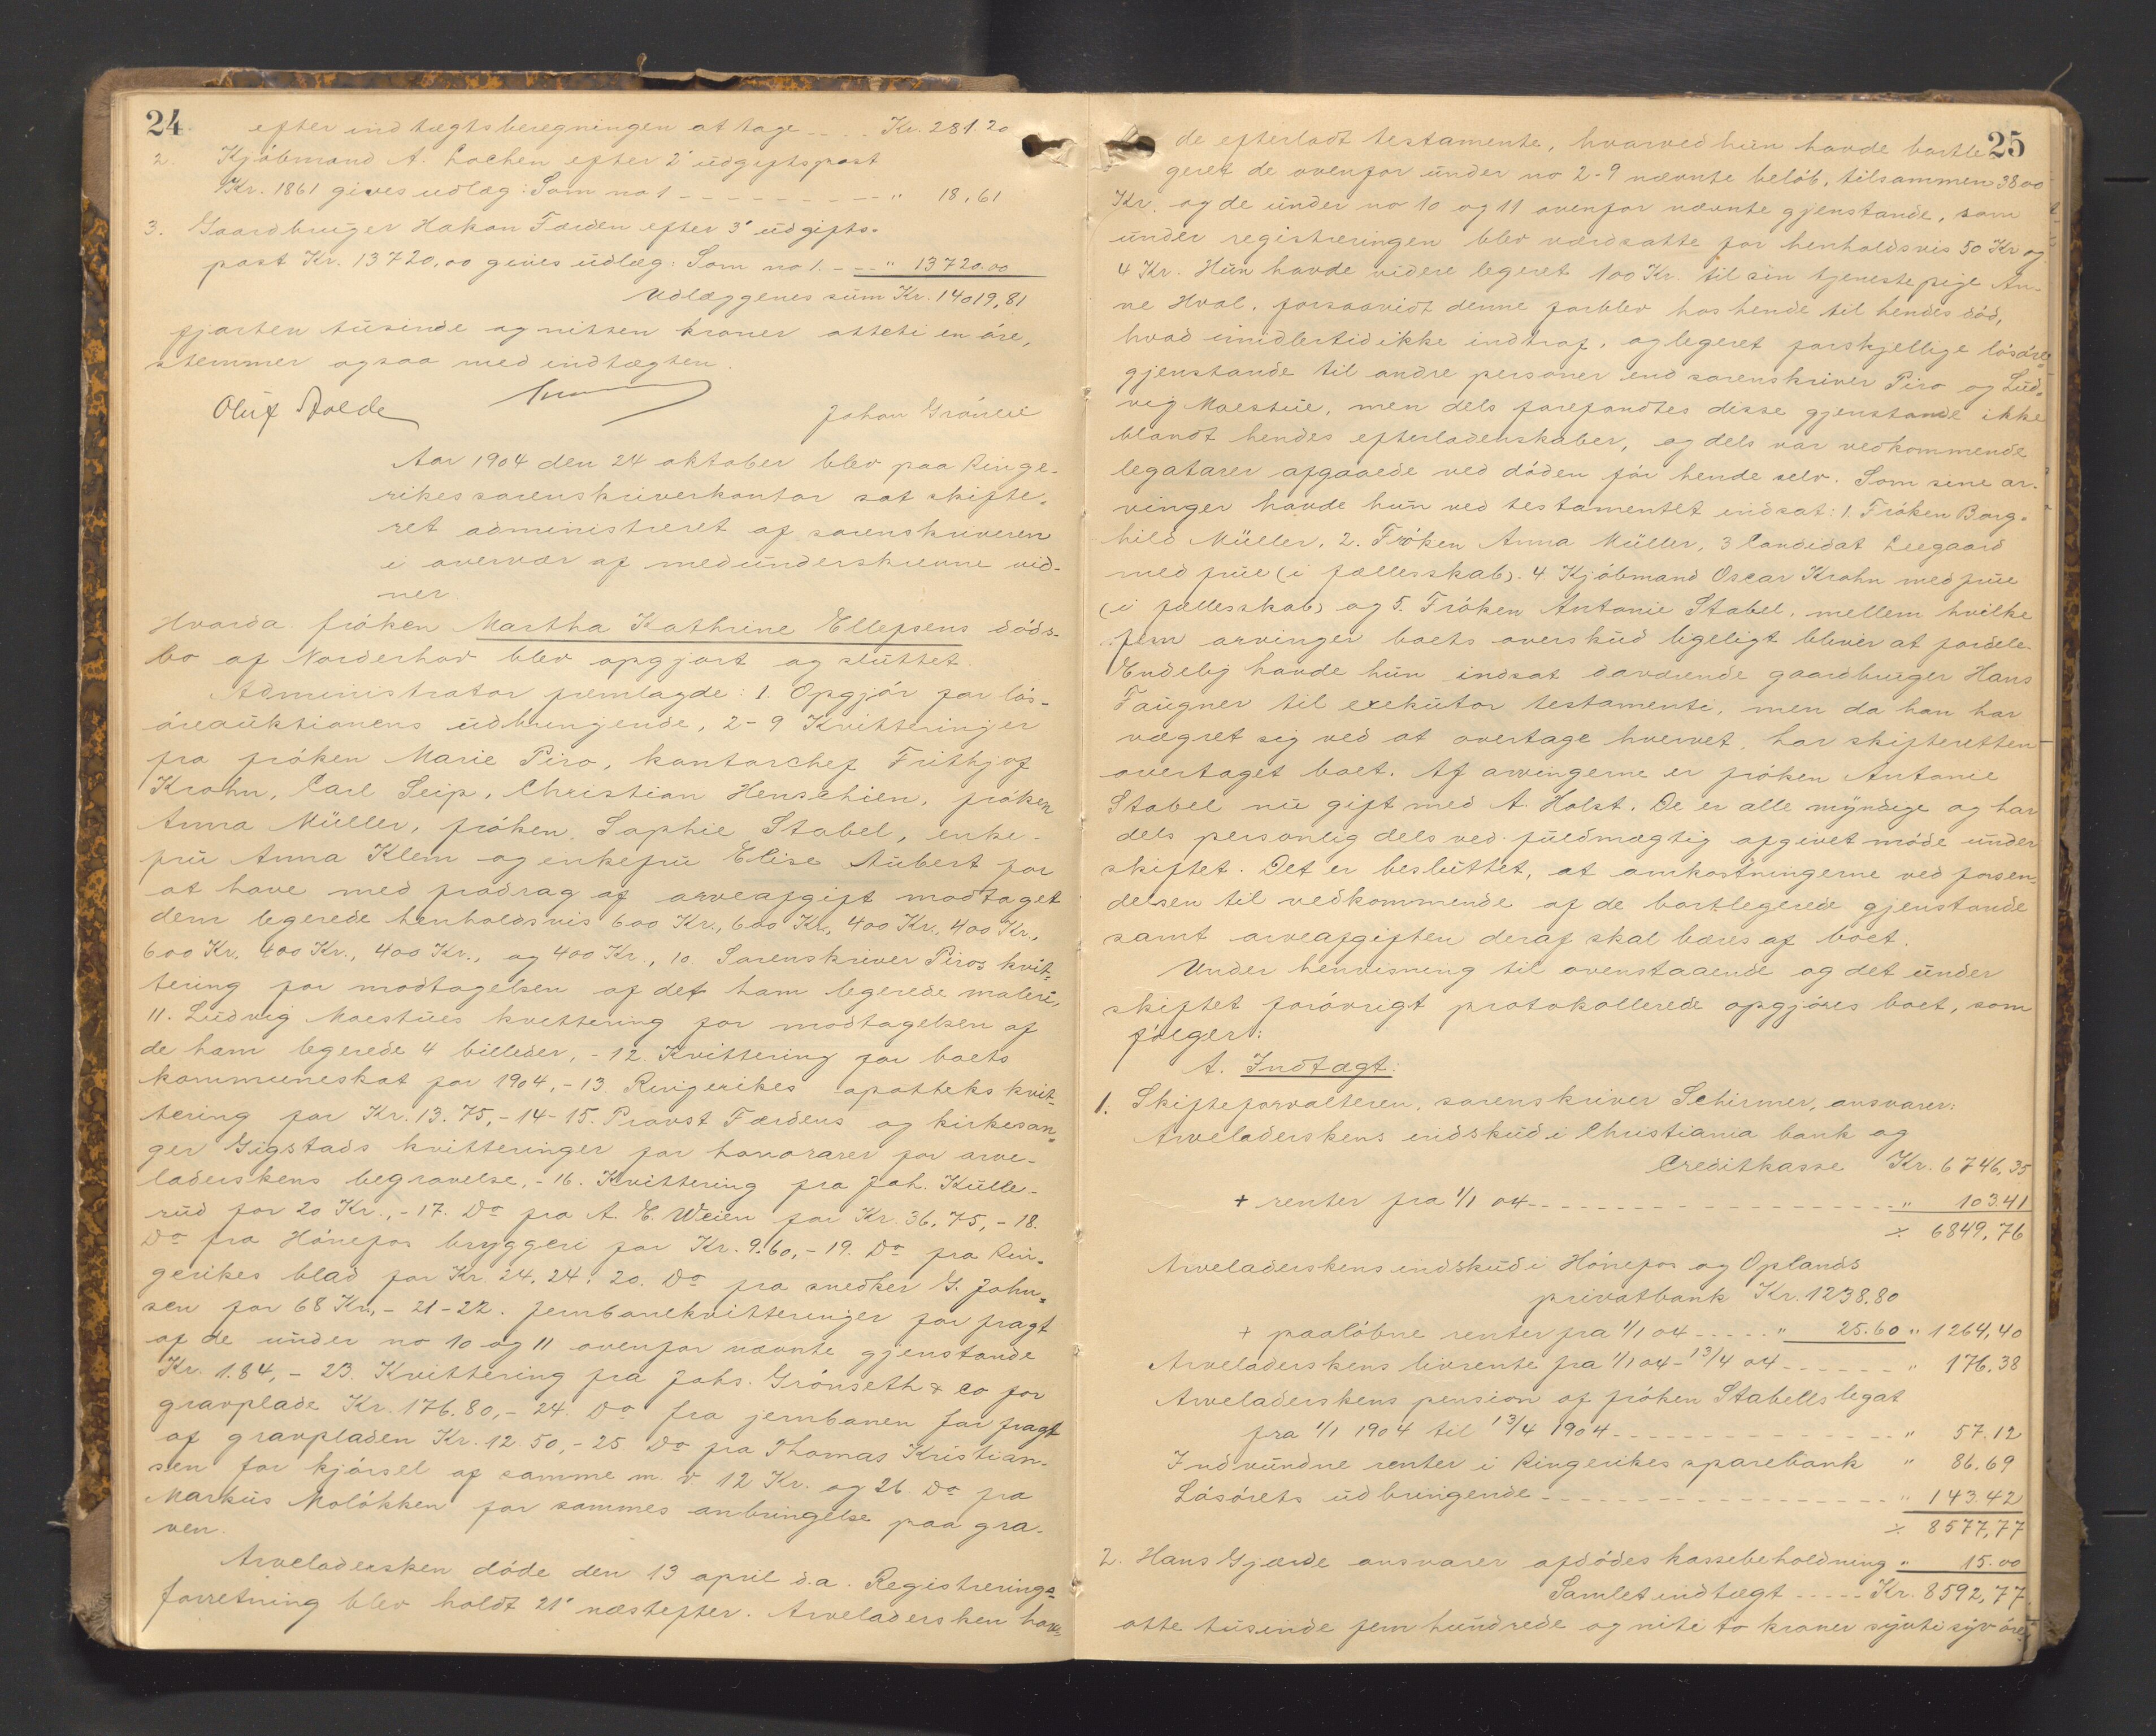 24
efter indtægtsberegningen at tage .... Kr. 281.20
2. Kjøbmand A. Lochen efter 2' udgiftspost
Kr. 1861 gives udlæg: Som no 1 - - - - " 18,61
3. Gaardbruger Hakon Færden efter 3' udgifts-
post Kr. 13720,00 gives udlæg: Som no 1. - - " 13720.00
Udlæggenes sum Kr. 14019,81
fjorten tusinde og nitten kroner otteti en øre,
stemmer ogsaa med indtægten.
Oluf Johan
Aar 1904 den 24 oktober blev paa Ringe-
rikes sorenskriverkontor sat skifte-
ret administreret af sorenskriveren
i overvær af medunderskrevne vid-
ner.
Hvorda frøken Martha Kathrine Ellefsens døds-
bo af Norderhov blev opgjort og sluttet.
Administrator fremlagde: 1. Opgjør for løs-
øreauktionens udbringende, 2-9 Kvitteringer
fra frøken Marie Piro, kontorchef Frithjof
Krohn, Carl Seip, Christian Henschien, frøken
Anna Müller, frøken Sophie Stabel, enke-
fru Anna Klem og enkefru Elise Aubert for
at have med fradrag af arveafgift modtaget
dem legerede henholdsvis 600 Kr., 600 Kr., 400 Kr. 400 Kr.,
600 Kr. 400 Kr., 400 Kr., og 400 Kr., 10. Sorenskriver Piros kvit-
tering for modtagelsen af det ham legerede maleri,
11. Ludvig Moestues kvittering for modtagelsen af
de ham legerede 4 billeder, - 12. Kvittering for boets
kommuneskat for 1904, - 13 Ringerikes apotheks kvit-
tering for Kr. 13.75, - 14-15. Provst Færdens og kirkesan-
ger Gigstads kvitteringer for honorarer for arve-
laderskens begravelse, - 16. Kvittering fra Joh. Kulle-
rud for 20 Kr., - 17. Do fra A. E. Weien for Kr. 36,75, - 18.
Do fra Hønefos bryggeri for Kr. 9.60, - 19. Do fra Rin-
gerikes blad for Kr. 24.24, 20. Do fra snedker G. John-
sen for 68 Kr., - 21-22. Jernbanekvitteringer for fragt
af de under no 10 og 11 ovenfor nævnte gjenstande
Kr. 1.84, - 23. Kvittering fra Johs. Grønseth & Co for
gravplade Kr. 176.80, - 24. Do fra jernbanen for fragt
af gravpladen Kr. 12.50, - 25 Do fra Thomas Kristian-
sen for kjørsel af samme m. v. 12 Kr. og 26 Do fra
Markus Moløkken for sammes anbringelse paa gra-
ven.
Arveladersken døde den 13 april d.a. Registrerings-
forretning blev holdt 21' næstefter. Arveladersken hav-
25
de efterladt testamente, hvorved hun havde bortle-
geret de ovenfor under no 2-9 nævnte beløb, tilsammen 3800
Kr. og de under no 10 og 11 ovenfor nævnte gjenstande, som
under registreringen blev værdsatte for henholdsvis 50 Kr og
4 Kr. Hun havde videre legeret 100 Kr. til sin tjenestepige An-
ne Hval, forsaavidt denne forblev hos hende til hendes død,
hvad imidlertid ikke indtraf, og legeret forskjellige løsøre-
gjenstande til andre personer end sorenskriver Piro og Lud-
vig Moestue, men dels forefandtes disse gjenstande ikke
blandt hendes efterladenskaber, og dels var vedkommende
legatarer afgaaede ved døden før hende selv. Som sine ar-
vinger havde hun ved testamentet indsat: 1. Frøken Borg-
hild Müller, 2. Frøken Anna Müller, 3 Candidat Leegaard
med frue (i fællesskab). 4. Kjøbmand Oscar Krohn med frue
(i fællesskab) og 5. Frøken Antonie Stabel, mellem hvilke
fem arvinger boets overskud ligeligt bliver at fordele.
Endelig havde hun indsat daværende gaardbruger Hans
Faugner til exekutor testamente, men da han har
vægret sig ved at overtage hvervet, har skifteretten
overtaget boet. Af arvingerne er frøken Antonie
Stabel nu gift med A. Holst. De er alle myndige og har
dels personlig dels ved fuldmægtig afgivet møde under
skiftet. Det er besluttet, at omkostningerne ved forsen-
delsen til vedkommende af de bortlegerede gjenstande
samt arveafgiften deraf skal bæres af boet.
Under henvisning til ovenstaaende og det under
skiftet forøvrigt protokollerede opgjøres boet, som
følger:
A. Indtægt:
1. Skifteforvalteren, sorenskriver Schirmer, ansvarer:
Arveladerskens indskud i Christiania bank og
Creditkasse Kr. 6746,35
+ renter fra 1/1 04 - - - - " 103.41
÷ 6849,76
Arveladerskens indskud i Hønefos og Oplands
privatbank Kr. 1238.80
+ paaløbne renter fra 1/1 04 - - - " 25.60 " 1264,40
Arveladerskens livrente fra 1/1 04 - 13/4 04 - - - " 176.38
Arveladerskens pension af frøken Stabells legat
fra 1/1 1904 til 13/4 1904 - - - - " 57.12
Indvundne renter i Ringerikes sparebank " 86.69
Løsørets udbringende - - - - " 143.42
÷ 8577,77
2. Hans Gjærde ansvarer afdødes kassebeholdning " 15.00
Samlet indtægt - - - - Kr. 8592,77
otte tusinde fem hundrede og niti to kroner sytti syv øre